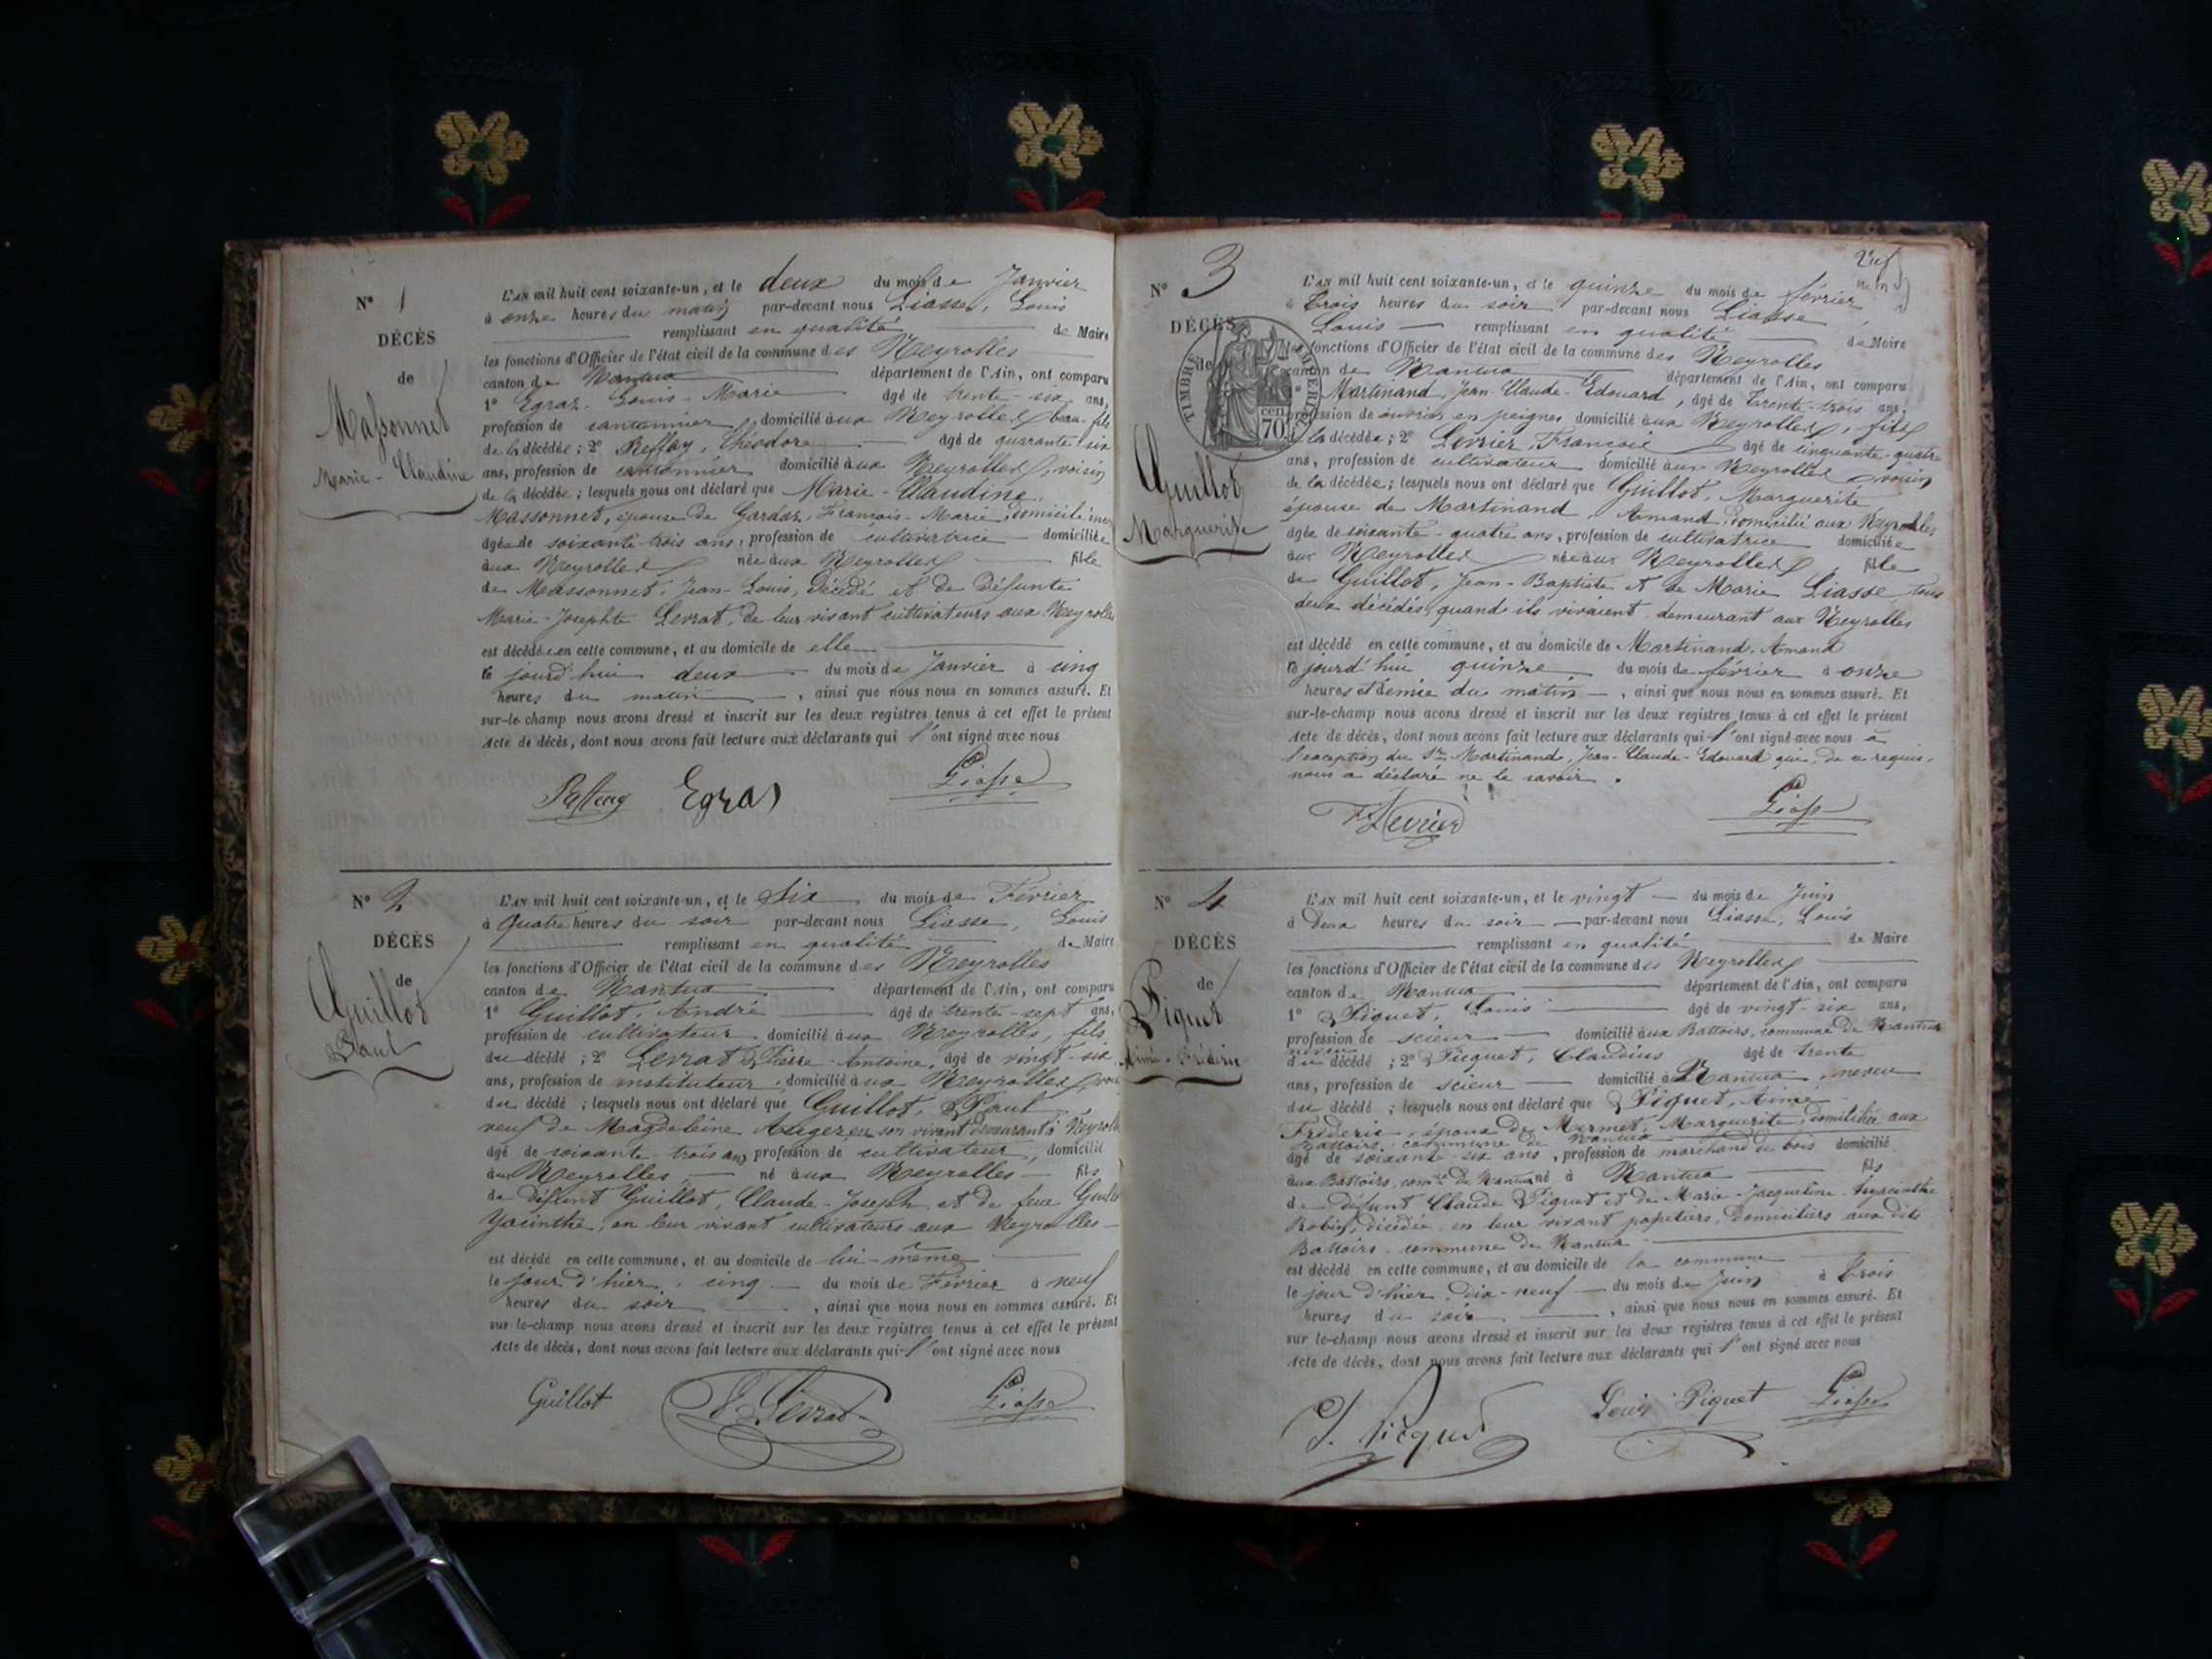 N° 1
DÉCÈS
de
Massonnet
Marie-Claudine
L'AN mil huit cent soixante-un, et le deux du mois de Janvier
à onze heures du matin par-devant nous Liasse, Louis
remplissant en qualité de Maire
les fonctions d'Officier de l'état civil de la commune des Neyrolles
canton de Nantua département de l'Ain, ont comparu
1° Egraz, Louis-Marie âgé de trente-six ans,
profession de cantonnier, domicilié aux Neyrolles, beau-fils
de la décédée; 2° Reffay, Théodore âgé de quarante-six
ans, profession de cantonnier domicilié aux Neyrolles, voisin
de la décédée; lesquels nous ont déclaré que Marie-Claudine
Massonnet, épouse de François-Marie, domicilié
âgée de soixante-trois ans, profession de cultivatrice domiciliée
aux Neyrolles née aux Neyrolles fille
de Massonnet, Jean-Louis, décédé et de défunte
Marie-Josephte Levrat, de leur vivant cultivateurs aux Neyrolles
est décédée en cette commune, et au domicile de elle
le jourd'hui deux du mois de Janvier à cinq
heures du matin, ainsi que nous nous en sommes assuré. Et
sur-le-champ nous avons dressé et inscrit sur les deux registres tenus à cet effet le présent
Acte de décès, dont nous avons fait lecture aux déclarants qui l'ont signé avec nous
Egraz Liasse
N° 2
DÉCÈS
de
Guillot
Paul
L'AN mil huit cent soixante-un, et le Six du mois de Février
à Quatre heures du soir par-devant nous Liasse, Louis
remplissant en qualité de Maire
les fonctions d'Officier de l'état civil de la commune des Neyrolles
canton de Nantua département de l'Ain, ont comparu
1° Guillot, André âgé de trente-sept ans,
profession de cultivateur domicilié aux Neyrolles, fils
du décédé; 2° Levrat Pierre-Antoine, âgé de vingt-six
ans, profession de instituteur, domicilié aux Neyrolles
du décédé; lesquels nous ont déclaré que Guillot, Paul
veuf de Magdeleine en son vivant demeurant à
âgé de soixante-trois ans profession de cultivateur, domicilié
aux Neyrolles né aux Neyrolles fils
de défunt Guillot, Claude-Joseph et de feue
Yacinthe, en leur vivant cultivateurs aux Neyrolles
est décédé en cette commune, et au domicile de lui-même
le jour d'hier, cinq du mois de Février à neuf
heures du soir, ainsi que nous nous en sommes assuré. Et
sur-le-champ nous avons dressé et inscrit sur les deux registres tenus à cet effet le présent
Acte de décès, dont nous avons fait lecture aux déclarants qui l'ont signé avec nous
Guillot Levrat Liasse
N° 3
DÉCÈS
de
TIMBRE IMPÉRIAL
70 cen.
Guillot
Marguerite
L'AN mil huit cent soixante-un, et le quinze du mois de février
à Trois heures du soir par-devant nous Liasse
Louis remplissant en qualité de Maire
les fonctions d'Officier de l'état civil de la commune des Neyrolles
canton de Nantua département de l'Ain, ont comparu
1° Martinand, Jean-Claude-Edouard, âgé de Trente-trois ans,
profession de ouvrier en peignes domicilié aux Neyrolles, fils
de la décédée; 2° Levrier, François âgé de cinquante-quatre
ans, profession de cultivateur domicilié aux Neyrolles voisin
de la décédée; lesquels nous ont déclaré que Guillot, Marguerite
épouse de Martinand, Amand, domicilié aux Neyrolles
âgée de soixante-quatre ans, profession de cultivatrice domiciliée
aux Neyrolles née aux Neyrolles, fille
de Guillot, Jean-Baptiste et de Marie Liasse tous
deux décédés, quand ils vivaient demeurant aux Neyrolles
est décédé en cette commune, et au domicile de Martinand, Amand
le jourd'hui quinze du mois de février à onze
heures et demie du matin, ainsi que nous nous en sommes assuré. Et
sur-le-champ nous avons dressé et inscrit sur les deux registres tenus à cet effet le présent
Acte de décès, dont nous avons fait lecture aux déclarants qui l'ont signé avec nous à
l'exception du Sr Martinand, Jean-Claude-Edouard qui, de ce requis,
nous a déclaré ne le savoir.
F Levrier Liasse
N° 4
DÉCÈS
de
Piquet
Aimé-Fréderic
L'AN mil huit cent soixante-un, et le vingt du mois de Juin
à Deux heures du soir par-devant nous Liasse, Louis
remplissant en qualité de Maire
les fonctions d'Officier de l'état civil de la commune des Neyrolles
canton de Nantua département de l'Ain, ont comparu
1° Piquet, Louis âgé de vingt-six ans,
profession de scieur domicilié aux Battoirs, commune de Nantua
neveu
du décédé; 2° Picquet, Claudius âgé de trente
ans, profession de scieur domicilié à Nantua, neveu
du décédé; lesquels nous ont déclaré que Piquet, Aimé
Fréderic, époux de Mermet, Marguerite, domiciliée aux
Battoirs, commune de Nantua
âgé de soixante-six ans, profession de marchand de bois domicilié
aux Battoirs, comne de Nantua né à Nantua fils
de défunt Claude Piquet et de Marie-Jacqueline-Hyacinthe
Robin, décédée, en leur vivant papetiers, domiciliés aux dits
Battoirs, commune de Nantua
est décédé en cette commune, et au domicile de la commune
le jour d'hier, dix-neuf du mois de Juin à Trois
heures du soir, ainsi que nous nous en sommes assuré. Et
sur-le-champ nous avons dressé et inscrit sur les deux registres tenus à cet effet le présent
Acte de décès, dont nous avons fait lecture aux déclarants qui l'ont signé avec nous
Picquet Louis Piquet Liasse